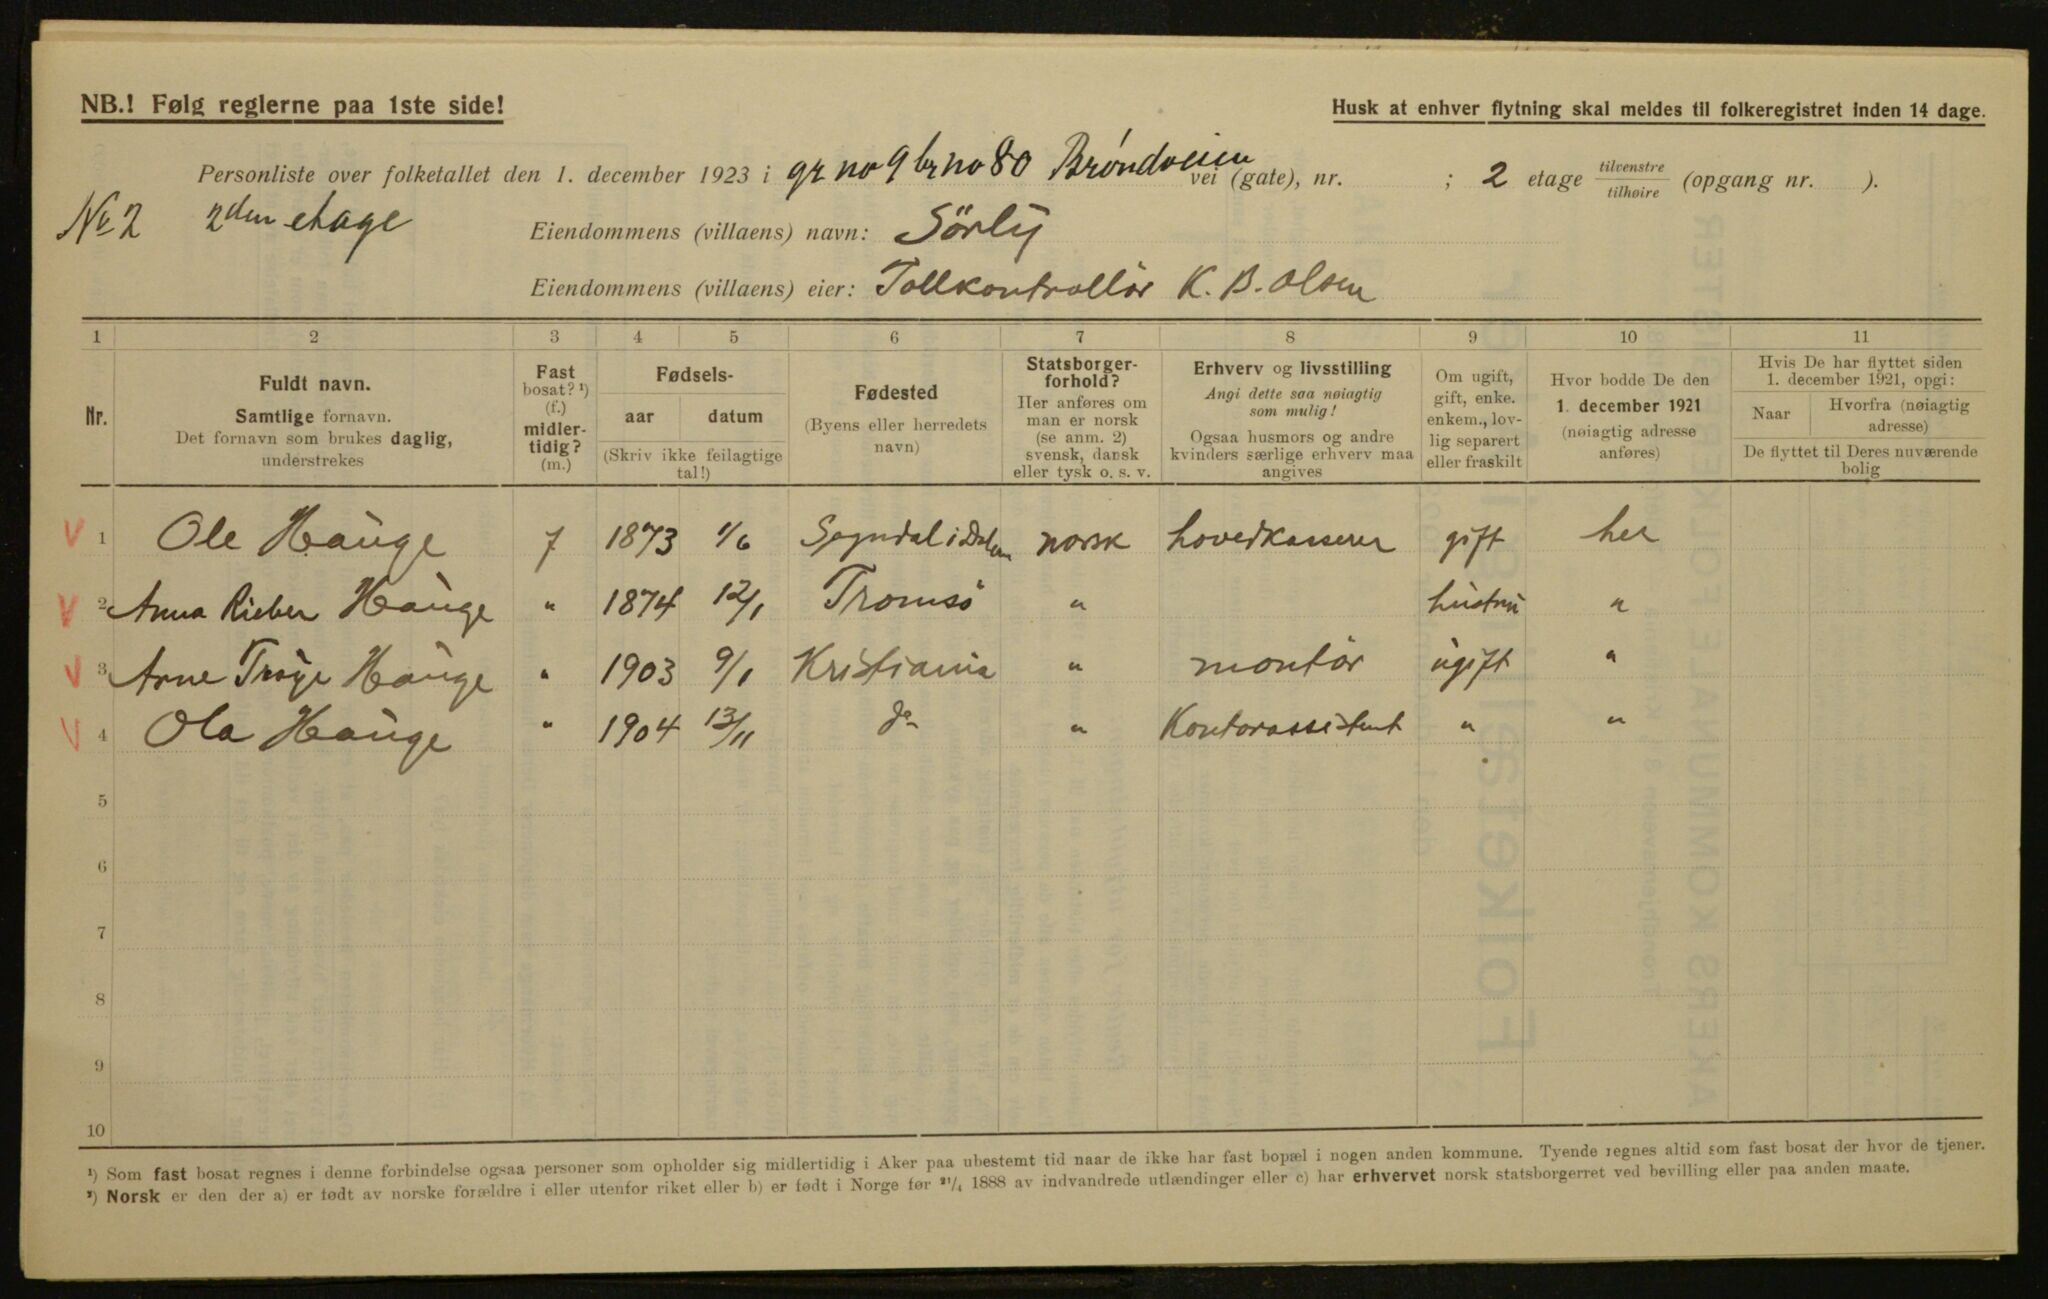 NB.! Følg reglerne paa 1ste side!
Husk at enhver flytning skal meldes til folkeregistret inden 14 dage.
Personliste over folketallet den 1. december 1923 i gr no 9 br no 80 Brøndveien vei (gate), nr. ; 2 etage tilvenstre tilhøire (opgang nr. ).
No 2 2den etage
Eiendommens (villaens) navn: Sörly
Eiendommens (villaens) eier: Tollkontrollör K. B. Olsen
1 2 3 4 5 6 7 8 9 10 11
Nr.
Fuldt navn.
Samtlige fornavn.
Det fornavn som brukes daglig,
understrekes
Fast
bosat? ¹)
(f.)
midler-
tidig?
(m.)
Fødsels-
aar datum
(Skriv ikke feilagtige
tal!)
Fødested
(Byens eller herredets
navn)
Statsborger-
forhold?
Her anføres om
man er norsk
(se anm. 2)
svensk, dansk
eller tysk o. s. v.
Erhverv og livsstilling
Angi dette saa nøiagtig
som mulig!
Ogsaa husmors og andre
kvinders særlige erhverv maa
angives
Om ugift,
gift, enke.
enkem., lov-
lig separert
eller fraskilt
Hvor bodde De den
1. december 1921
(nøiagtig adresse
anføres)
Hvis De har flyttet siden
1. december 1921, opgi:
Naar Hvorfra (nøiagtig
adresse)
De flyttet til Deres nuværende
bolig
V 1 Ole Hauge f 1873 1/6 Sogndal i Dalene norsk hovedkasserer gift her
V 2 Anna Rieber Hauge " 1874 12/1 Tromsö " hustru "
V 3 Arne Troye Hauge " 1903 9/1 Kristiania " montör ugift "
V 4 Ola Hauge " 1904 13/11 do " Kontorassistent " "
5
6
7
8
9
10
¹) Som fast bosat regnes i denne forbindelse ogsaa personer som opholder sig midlertidig i Aker paa ubestemt tid naar de ikke har fast bopæl i nogen anden kommune. Tyende regnes altid som fast bosat der hvor de tjener.
²) Norsk er den der a) er født av norske forældre i eller utenfor riket eller b) er født i Norge før ²¹/₄ 1888 av indvandrede utlændinger eller c) har erhvervet norsk statsborgerret ved bevilling eller paa anden maate.